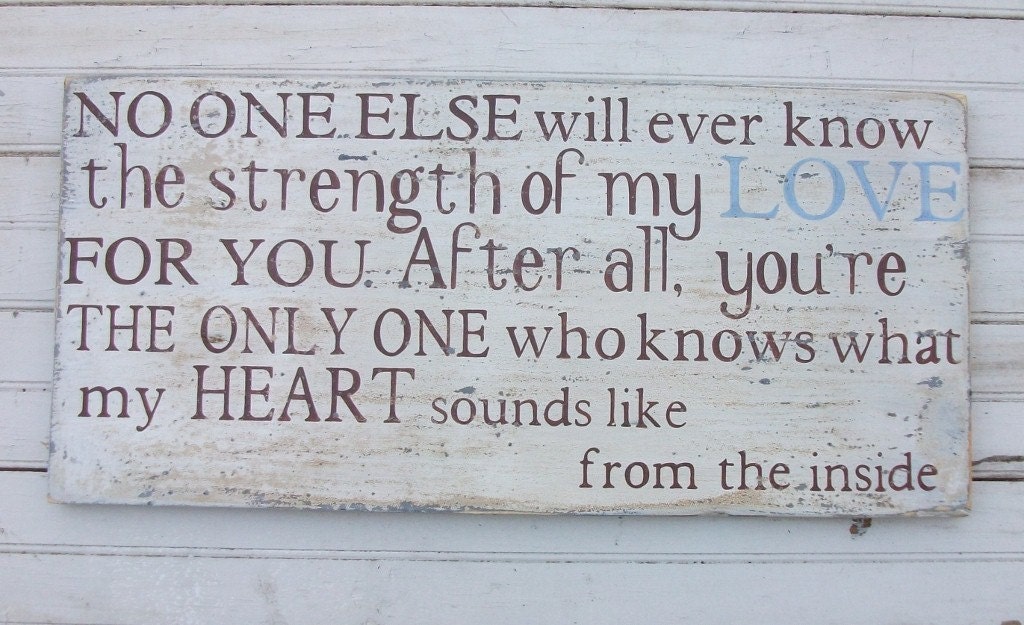 NO ONE ELSE will ever know
the strength of my LOVE
FOR YOU. After all, you're
THE ONLY ONE who knows what
my HEART sounds like
from the inside